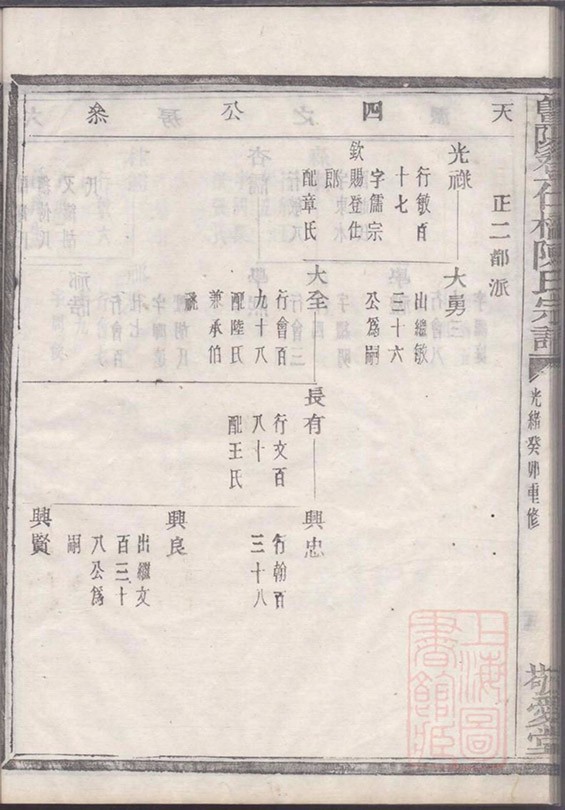 陳氏宗譜
光緒癸卯重修
敬愛堂
天四公叅
正二都派
光祿
行敏百
十七
字儒宗
欽賜登仕
郎
配章氏
大勇
出繼敏
三十六
公爲嗣
大全
行會百
九十八
配陸氏
兼承伯
祧
長有
行文百
八十
配王氏
興忠
行翰百
三十八
興良
出繼文
百三十
八公爲
嗣
興賢
上海圖
書館藏